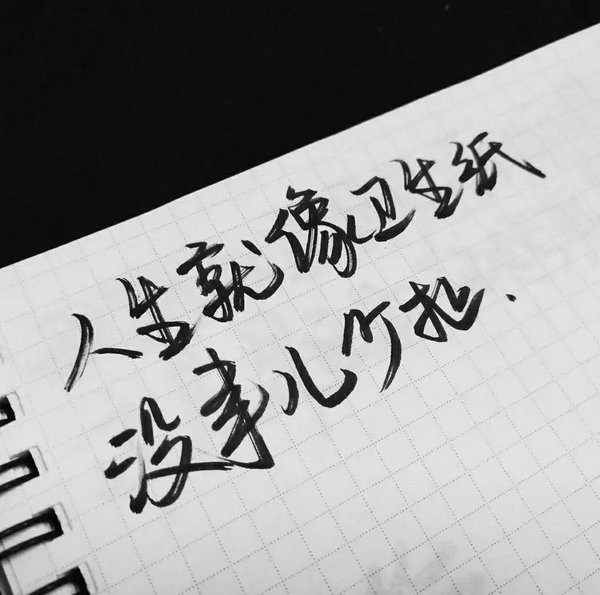 人生就像卫生纸
没事儿少扯.